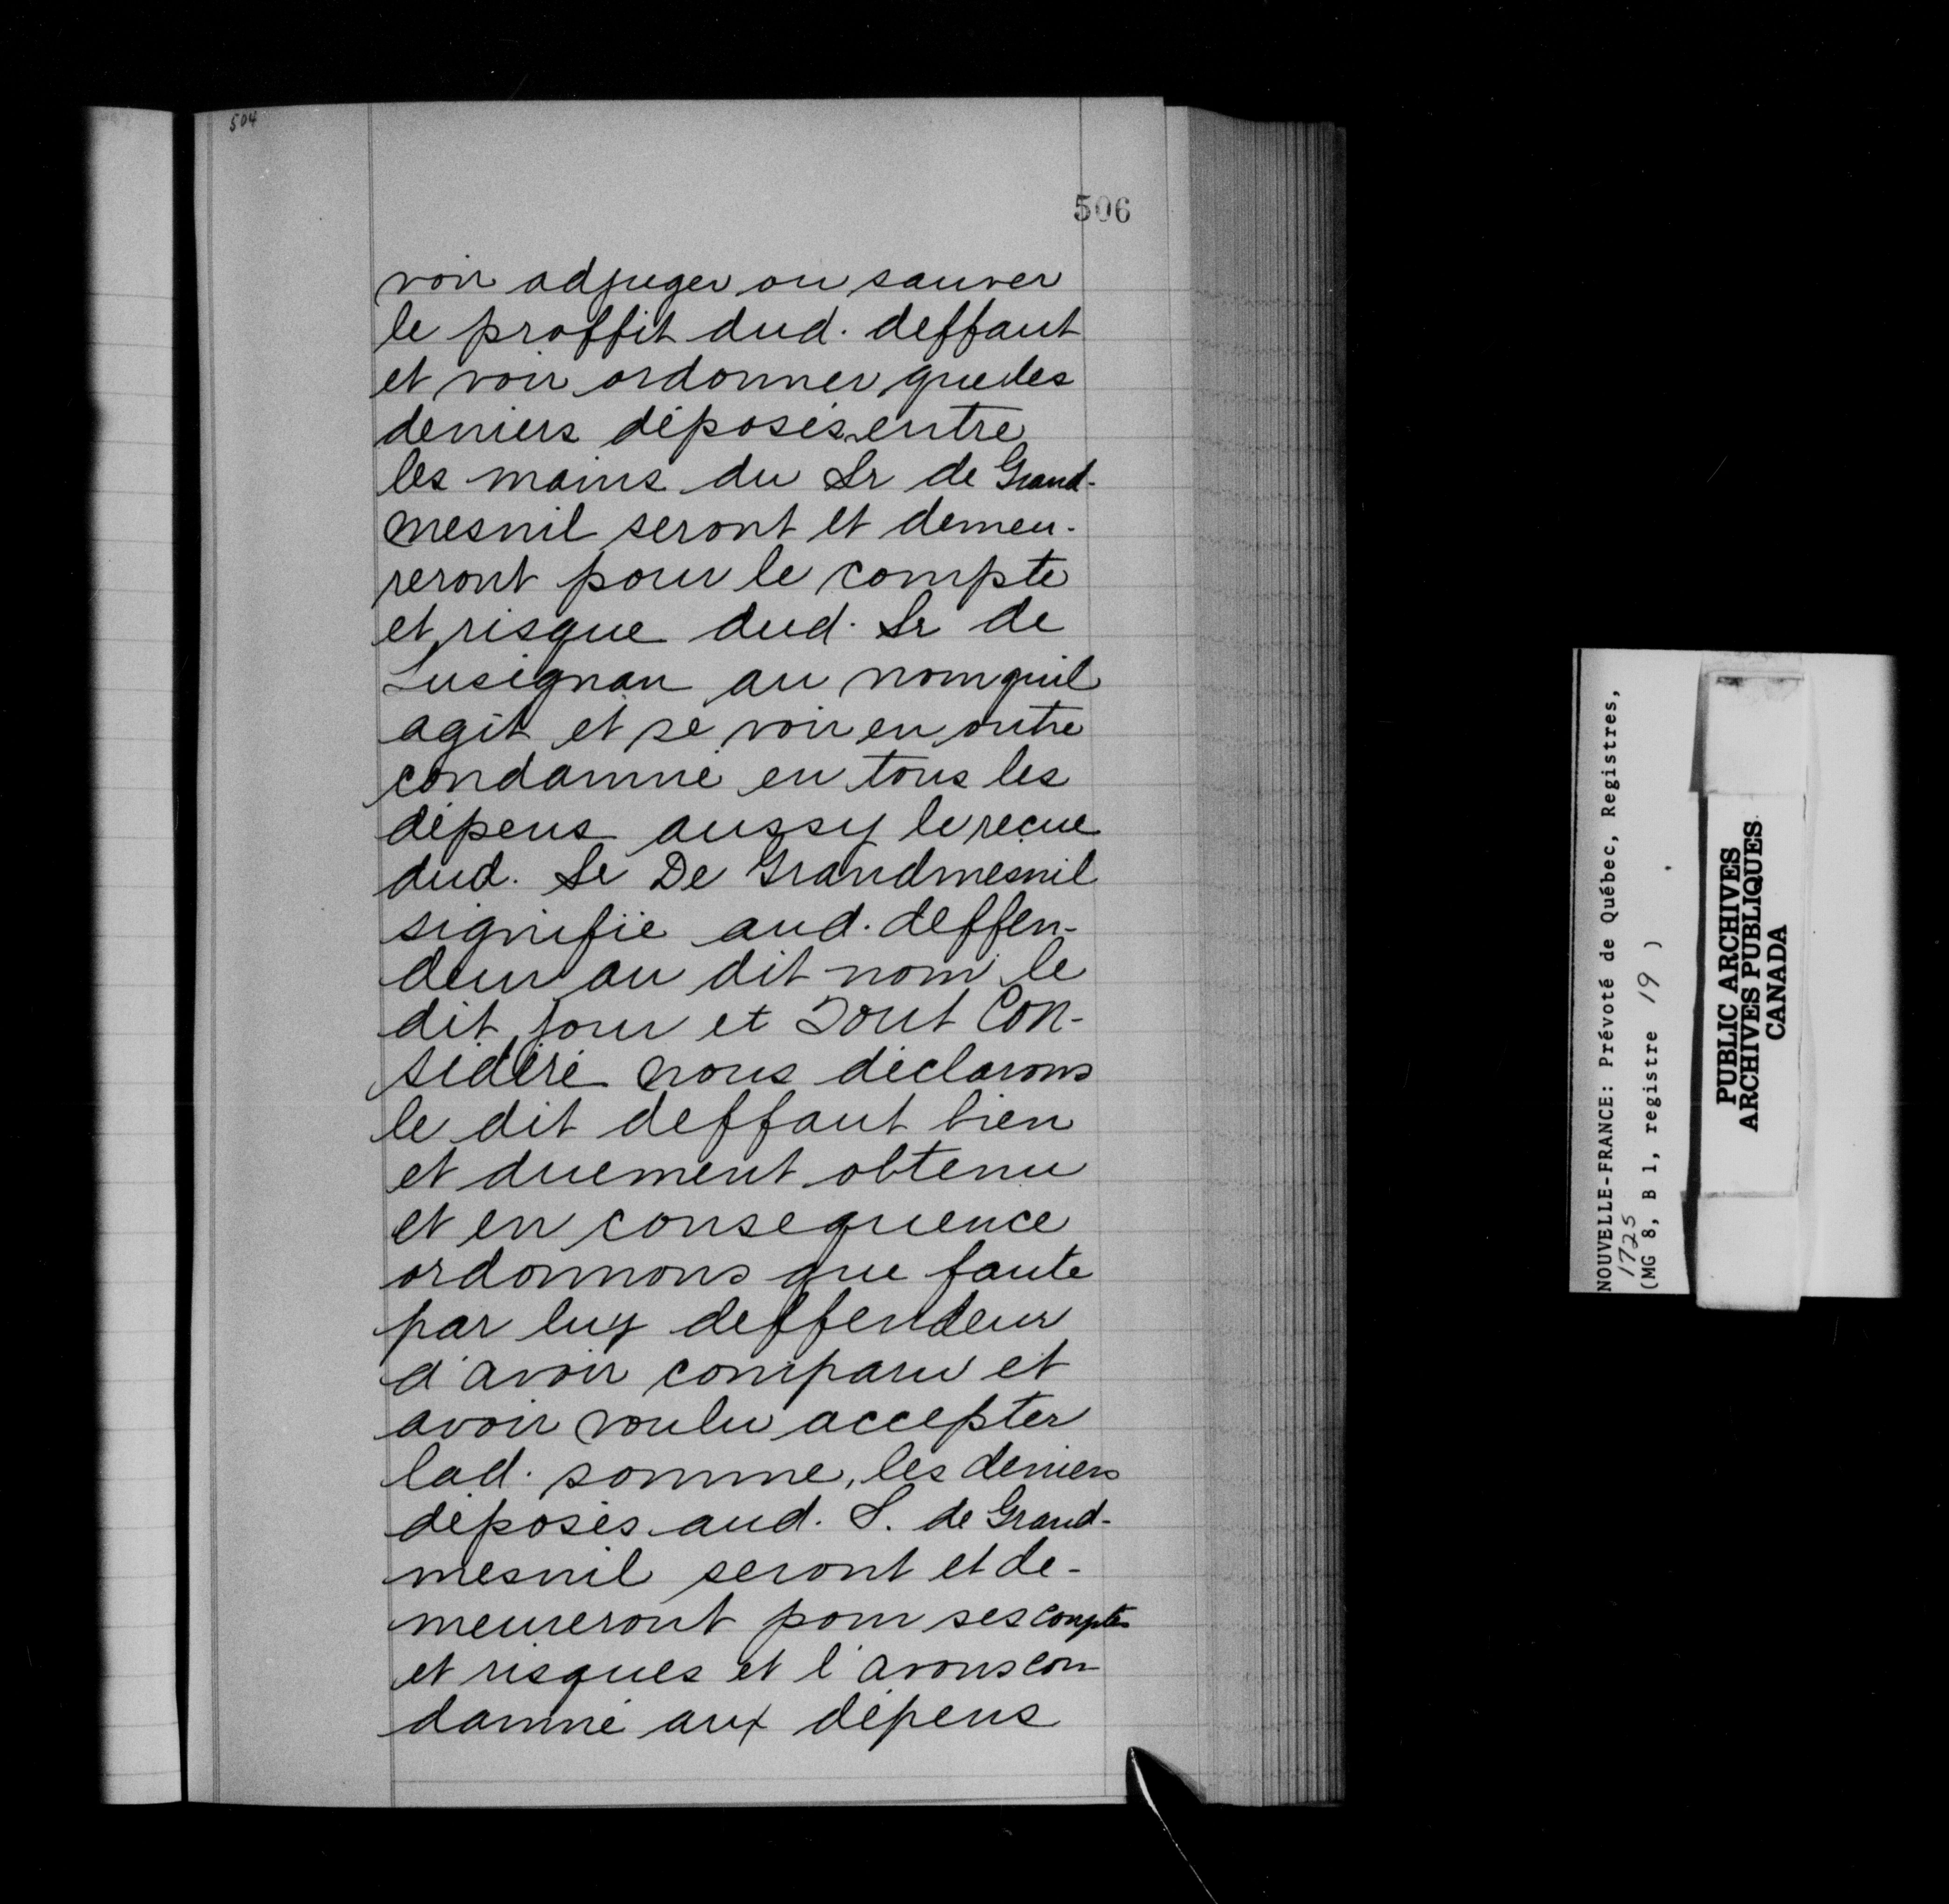 504
506
voir adjuger ou sauver
le proffit dud. deffaut
et voir ordonner que les
deniers déposés entre
les mains du Sr de Grand-
mesnil seront et demeu-
reront pour le compte
et risque dud. Sr de
Lusignan au nom quil
agit et se voir en outre
condamné en tous les
dépens aussy le reçue
dud. Sr De Grandmesnil
signifié aud. deffen-
deur au dit nom le
dit jour et Tout Con-
sidéré nous déclarons
le dit deffaut bien
et duement obtenu
et en consequence
ordonnons que faute
par luy deffendeur
d'avoir comparu et
avoir voulu accepter
lad. somme, les deniers
déposés aud. S. de Grand-
mesnil seront et de-
meureront pour ses comptes
et risques et l'avons con-
damné aux dépens
NOUVELLE-FRANCE: Prévoté de Québec, Registres,
1725
(MG 8, B 1, registre 19 )
PUBLIC ARCHIVES
ARCHIVES PUBLIQUES
CANADA